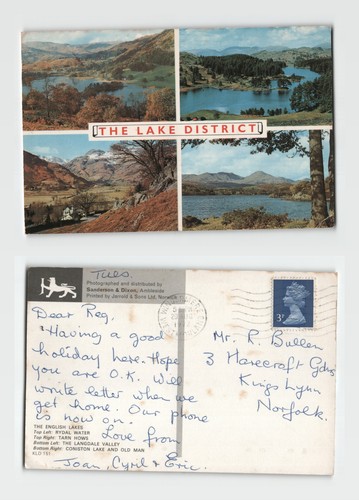 THE LAKE DISTRICT
Tues.
Photographed and distributed by
Sanderson & Dixon, Ambleside
Printed by Jarrold & Sons Ltd, Norwich
Dear Reg.
Having a good
holiday here. Hope
you are O.K. Will
write letter when we
get home. Our phone
is now on.
Love from
Joan, Cyril & Eric.
THE ENGLISH LAKES
Top Left: RYDAL WATER
Top Right: TARN HOWS
Bottom Left: THE LANGDALE VALLEY
Bottom Right: CONISTON LAKE AND OLD MAN
KLD 151
3P
Mr. R. Bullen
3 Harecroft Gdns
Kings Lynn
Norfolk.